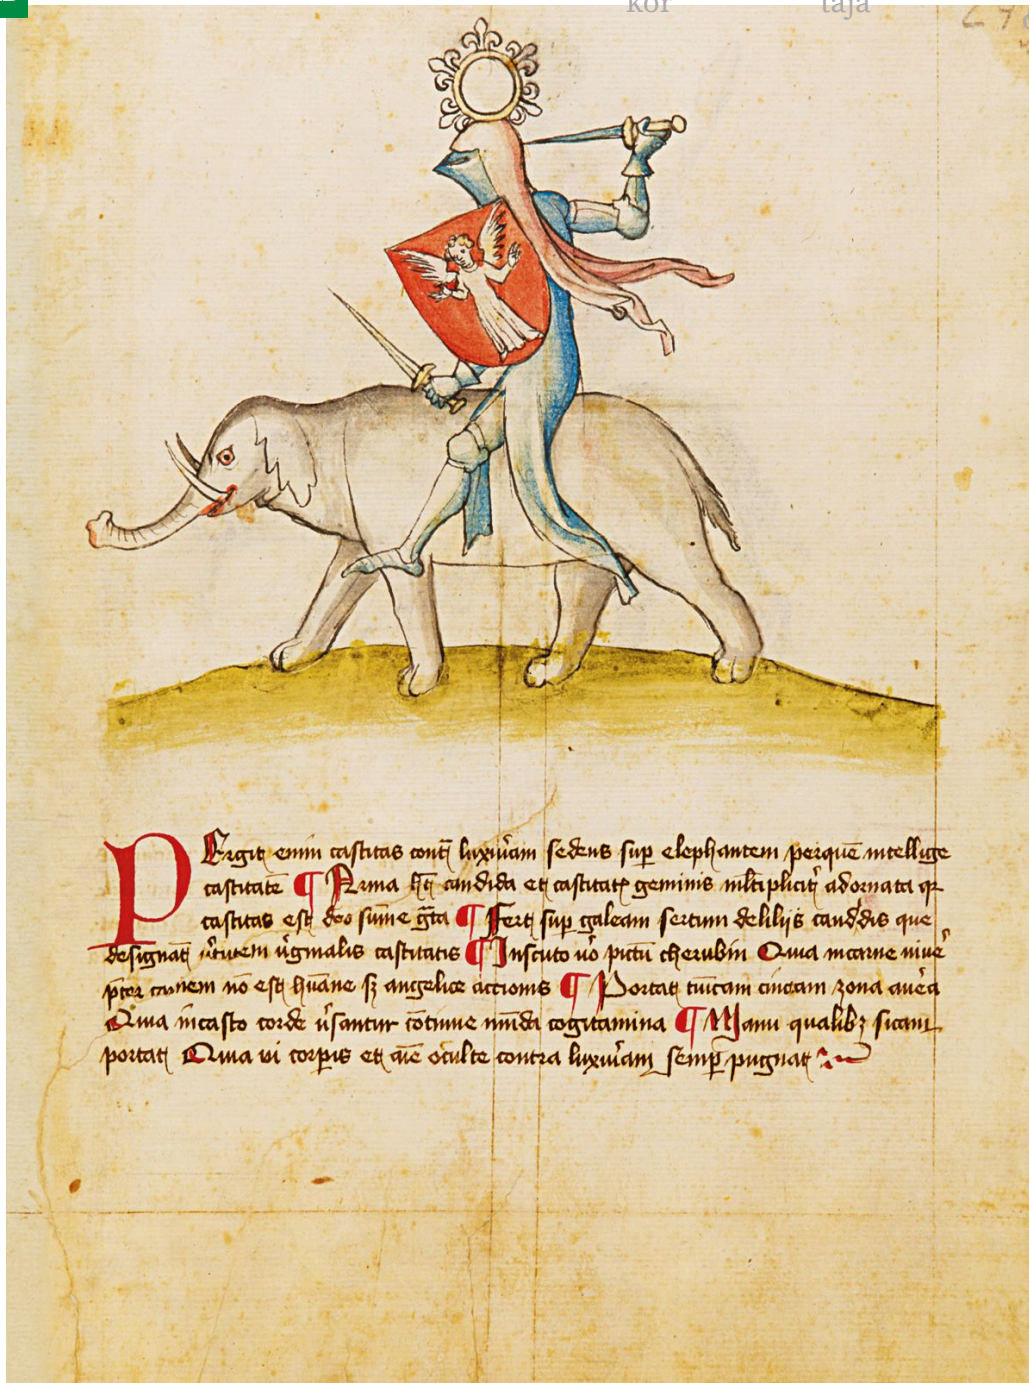 kor taja
PErgit enim castitas cont̄ luxur̄iam sedens sup̱ elephantem perquē intellige
castitatē ¶ Arma ht̄ candida et castitatꝭ geminis ml̄tiplicit̉ adornata qꝛ
castitas est deo sūme gr̄ta ¶ Fert sup̱ galeam sertum deliliis candidis que
designāt v̉tutem v̉ginalis castitatis ¶ Inscuto v̉o pictū cherubin Quia incarne
p̄ter carnem nō est hūane sꝫ angelice actionis ¶ Portat tunicam cinctam zona aur̉ea
Quia incasto corde v̉santur cōtinue mūda cogitamina ¶ Manu qualibꝫ sicam
portat Quia vi corp̱is et occulte contra luxur̄iam semp̱ pugnat